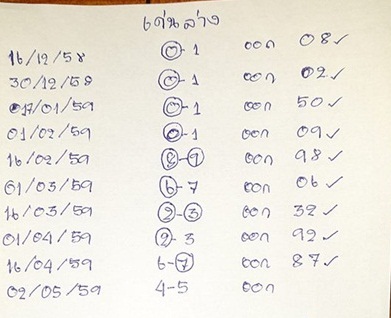 เด่นล่าง
16/12/58 0-1 ออก 08✓
30/12/58 0-1 ออก 02✓
17/01/59 0-1 ออก 50✓
01/02/59 0-1 ออก 09✓
16/02/59 8-9 ออก 98✓
01/03/59 6-7 ออก 06✓
16/03/59 2-3 ออก 32✓
01/04/59 2-3 ออก 92✓
16/04/59 6-7 ออก 87✓
02/05/59 4-5 ออก